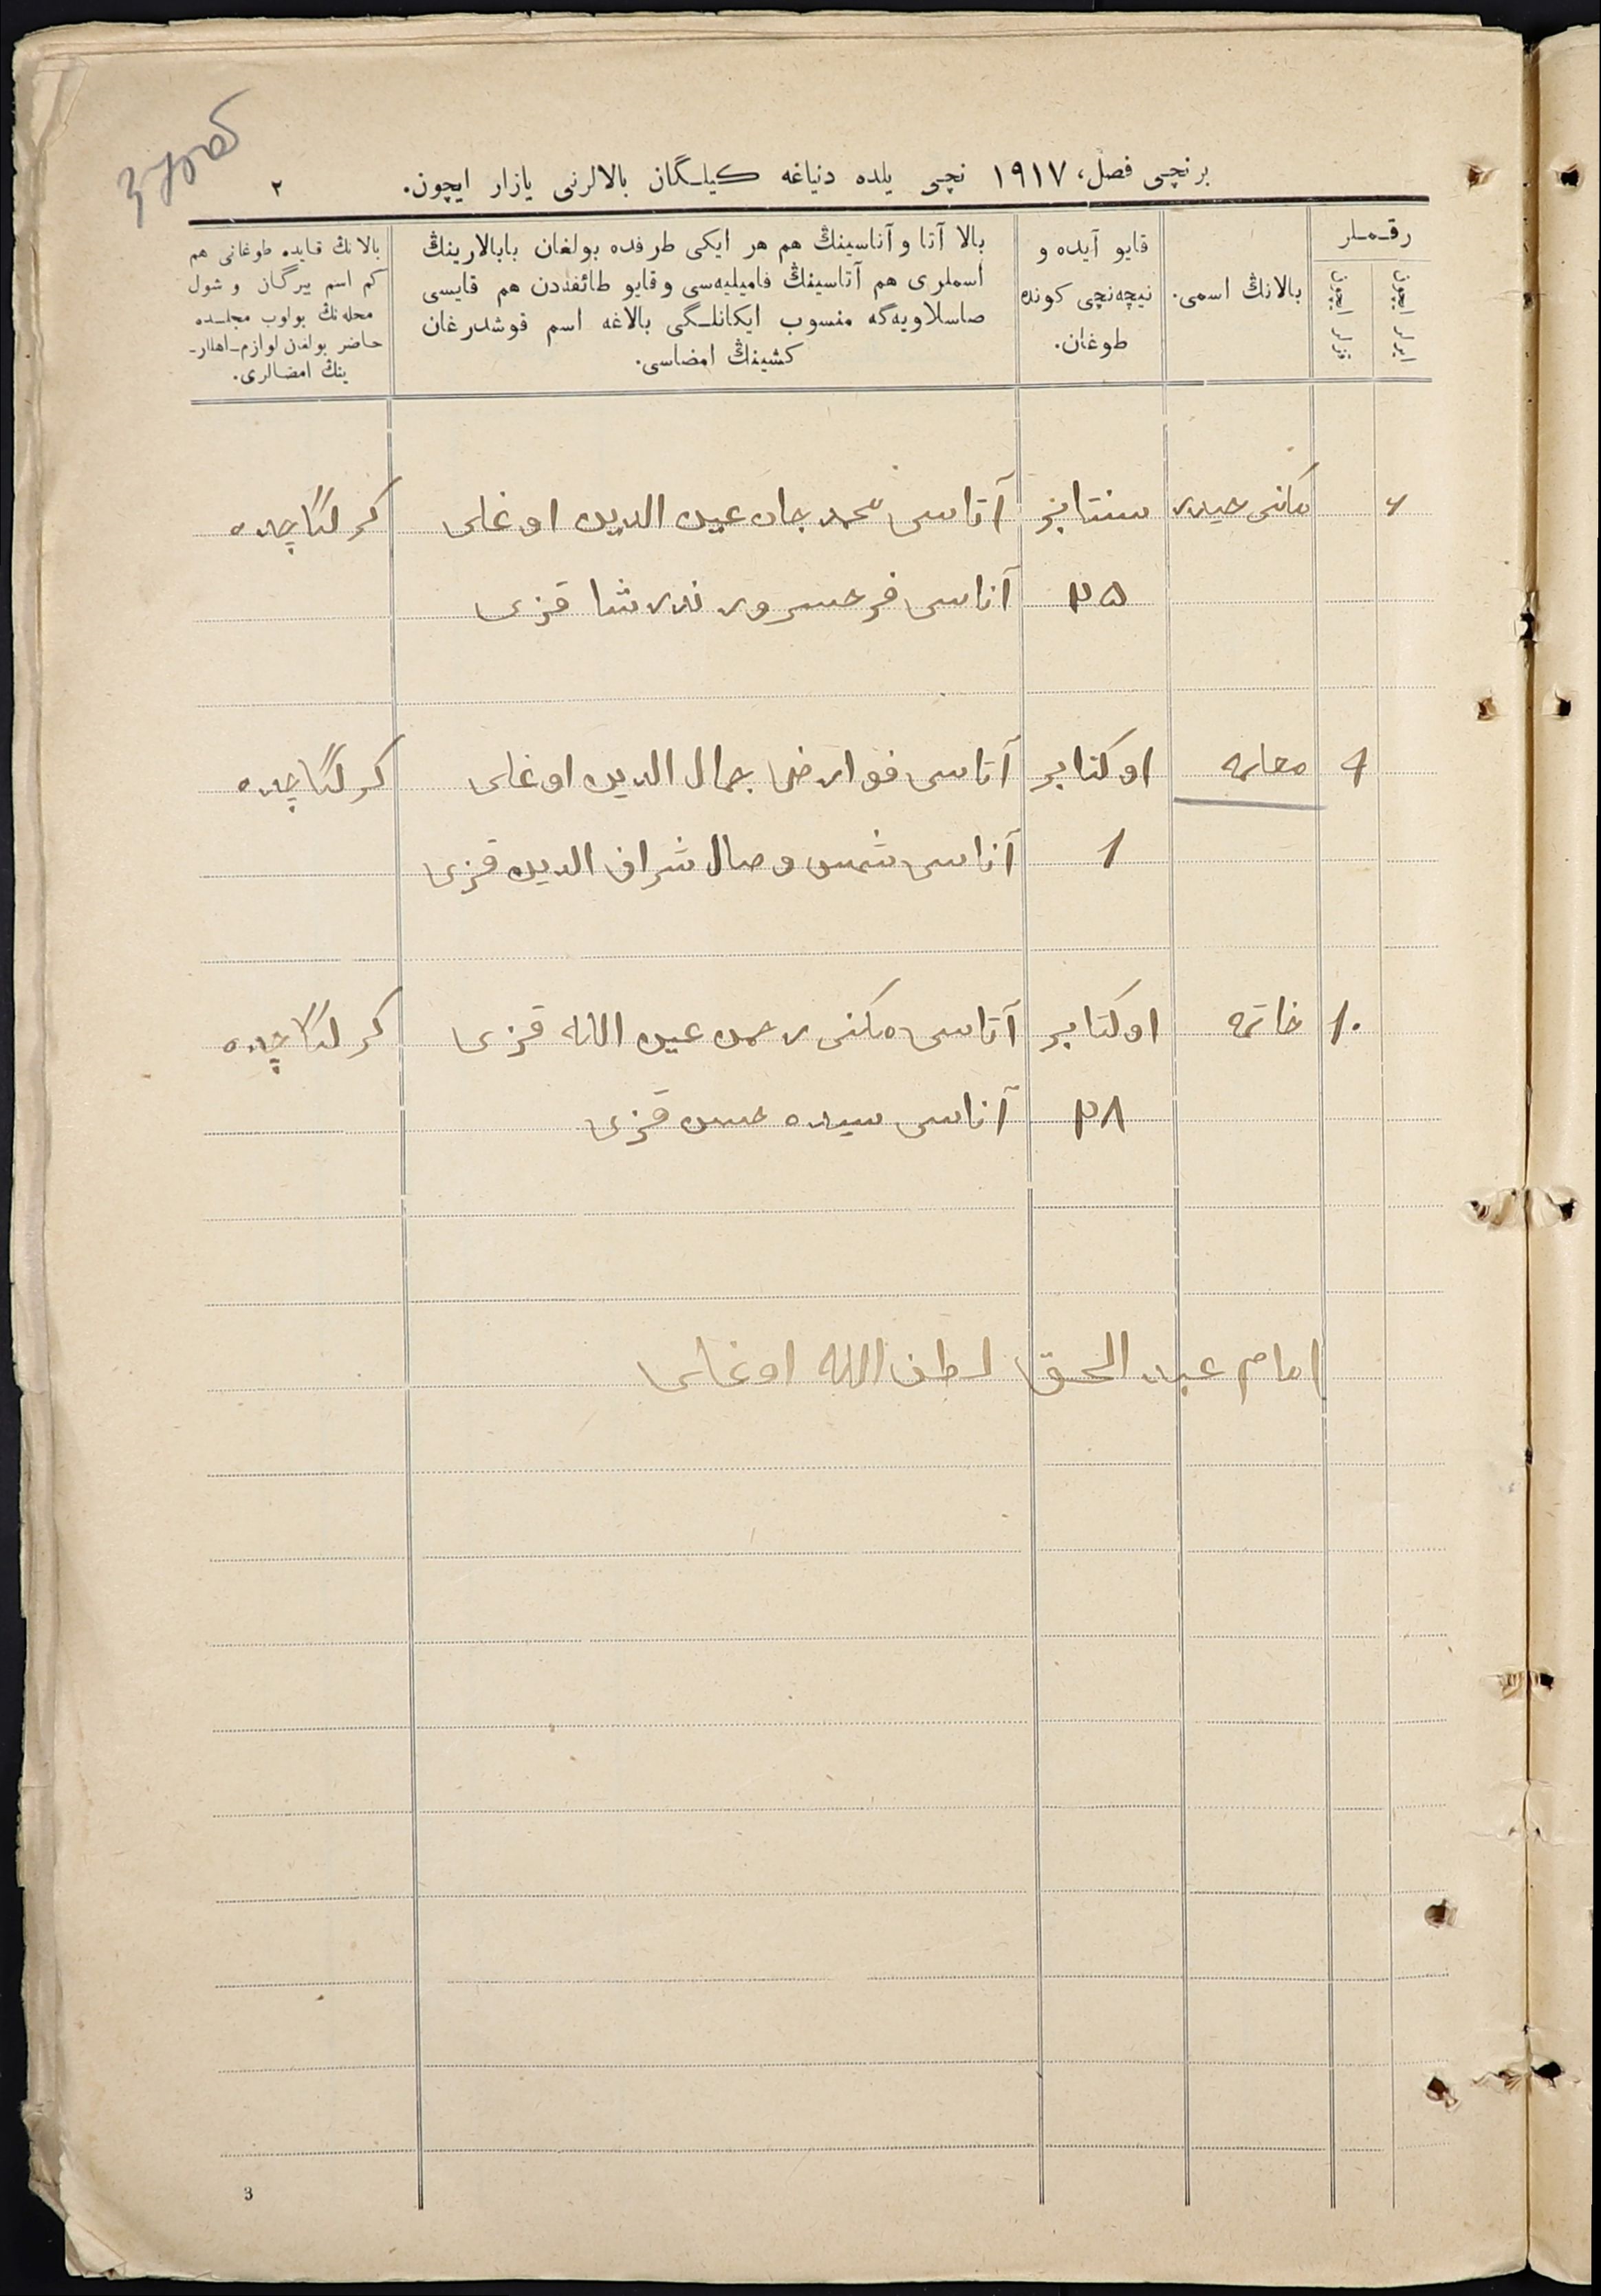 برنچی فصل، ١٩١٧ نچی یلده دنیاغه کیلـگان بالالرنی یازار ایچون.
٢
رقـمـلر
ایرلر ایچون
قزلر ایچون
بالانڭ اسمی.
قایو آیده و
نیچه‌نچی کونده
طوغان.
بالا آتا و آناسینڭ هم هر ایکی طرفده بولغان بابالارینڭ
اسملری هم آتاسینڭ فامیلیه‌سی و قایو طائفه‌دن هم قایسی
صاسلاویه‌گه منسوب ایکانلـگی بالاغه اسم قوشدرغان
کشینڭ امضاسی.
بالانڭ قایده طوغانی هم
کم اسم بیرگان و شول
محله‌نڭ بولوب مجلـسده
حاضر بولغان لوازم-اهللر-
ینڭ امضالری.
سنتابر آتاسی محمد جان عین الدین اوغلی کرلگاچده
٢٥ آناسی
قزی
٩ اوکتابر آتاسی جمال الدین اوغلی کرلگاچده
١ آناسی شمس وصال شراف الدین قزی
١٠ خاتمه اوکتابر آتاسی قزی کرلگاچده
٢٨ آناسی سیده حسن قزی
امام عبد الحق لطف الله اوغلی
3